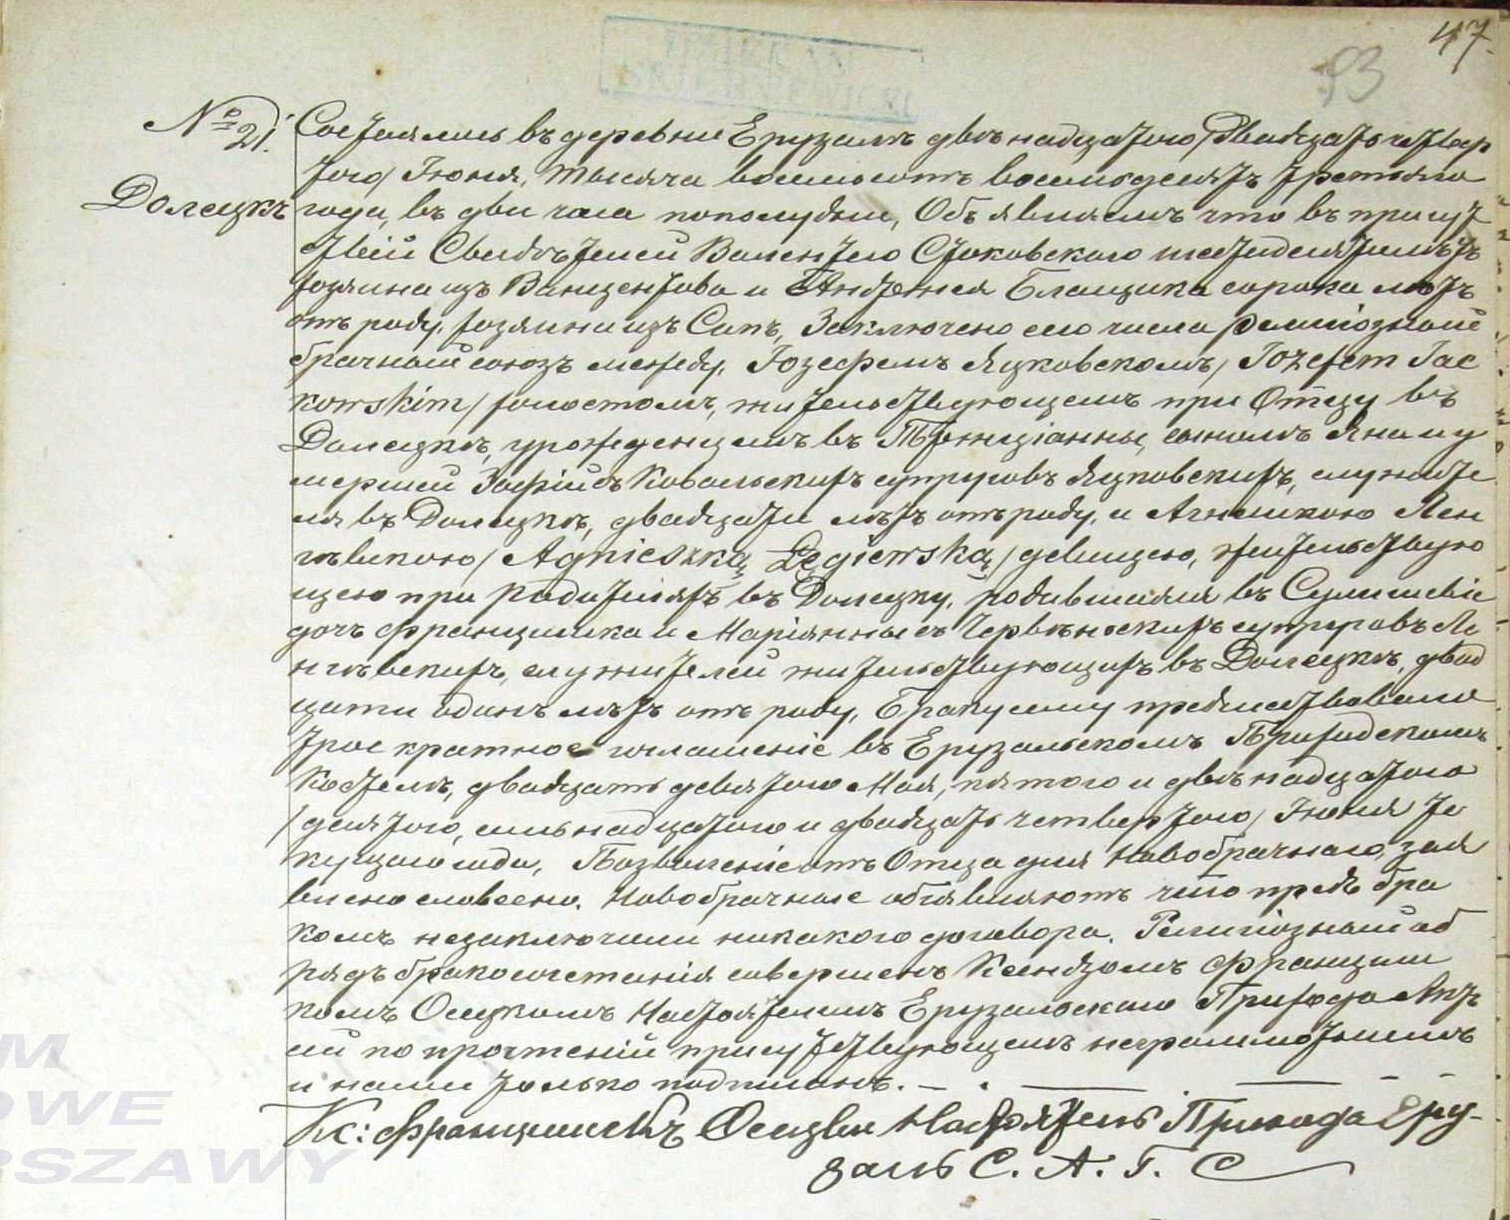 47.
93
№ 21.
Долецкъ
Состоялось въ деревнѣ Ерузаль двѣнадцатого /двадцать четвер
того/ Іюня, тысяча восемьсотъ восемьдесятъ третьяго
года, въ два часа пополудни, Объявляемъ что въ присут
ствіи Свидѣтелей Валентего Стоковского шестидесятилѣтъ
хозяина изъ Ванцентова и Андржея Блащика сорока лѣтъ
отъ роду, хозяина изъ Сапъ, Заключено сего числа религіозный
брачный союзъ между, Іозефомъ Яцковскомъ, /Iozefem Iac
kowskim/ холостомъ, жительствующемъ при Отцу въ
Долецкѣ, урожденцемъ въ Пржиціанны, сыномъ Яна и у
мершей Зофіи съ Ковальскихъ супруговъ Яцковскихъ, служите
ля въ Долецкѣ, двадцати лѣтъ отъ роду, и Агнешкою Лен
гѣвскою /Agnieszką Łęgiewską/ девицею, жительствую
щею при Родителяхъ въ Долецку, родившаяся въ Сулишеве
дочъ Францишка и Маріянны съ Червѣнскихъ супруговъ Ле
нгѣвскихъ, служителей жительствующихъ въ Долецкѣ, двад
цати одинъ лѣтъ отъ роду, Браку сему предшествовало
трое кратное оглашеніе въ Ерузальскомъ Приходскомъ
Костелѣ, двадцать девятого Мая, пятого и двѣнадцатого
/десятого, семьнадцатого и двадцать четвертого/ Іюня те
кущаго года, Позволеніе отъ Отца для Новобрачнаго, зая
влено словесно. Новобрачные объявляютъ что предъ бра
комъ незаключили никакого договора. Религіозный об
рядъ бракосочетанія совершенъ Ксендзомъ Францыш
комъ Осецкомъ Настоятелемъ Ерузальского Прихода Актъ
сей по прочтеніи присутствующемъ неграмотнымъ
и нами только подписанъ.
Кс: Францишекъ Осецки Настоятель Прихода Еру-
заль С. А. Г. С
M
OWE
RSZAWY